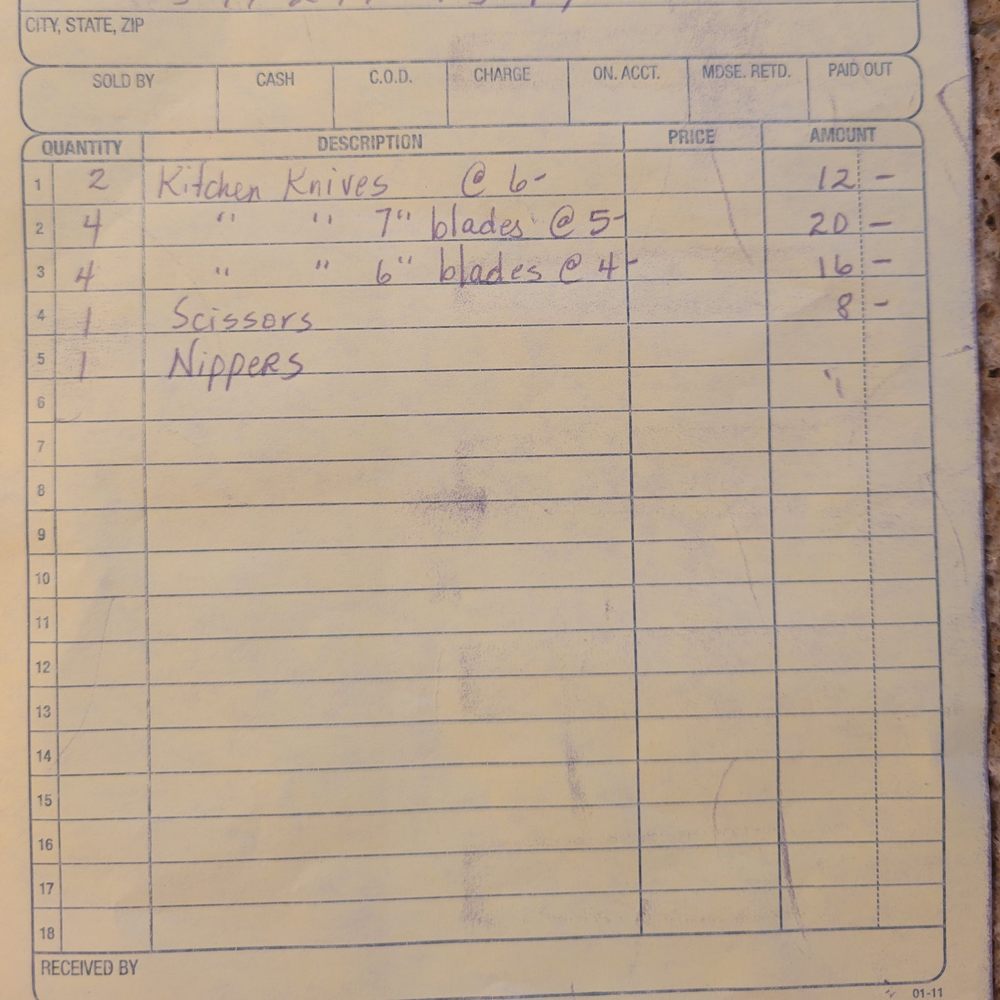 CITY, STATE, ZIP
SOLD BY CASH C.O.D. CHARGE ON. ACCT. MDSE. RETD. PAID OUT
QUANTITY DESCRIPTION PRICE AMOUNT
1 2 Kitchen Knives @ 6- 12 -
2 4 " " 7" blades @ 5- 20 -
3 4 " " 6" blades @ 4- 16 -
4 1 Scissors 8 -
5 1 Nippers
6
7
8
9
10
11
12
13
14
15
16
17
18
RECEIVED BY
01-11